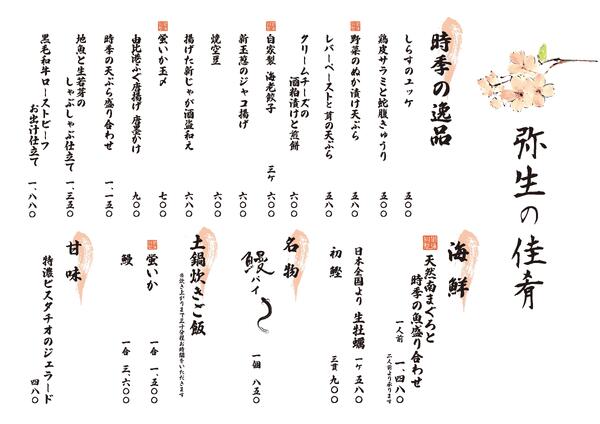 弥生の佳肴
時季の逸品
しらすのユッケ 五〇〇
鶏皮サラミと蛇腹きゅうり 五〇〇
野菜のぬか漬け天ぷら 五八〇
レバーペーストと茸の天ぷら 五八〇
クリームチーズの
酒粕漬けと煎餅 六〇〇
自家製 海老餃子 三ケ 六〇〇
新玉葱のジャコ揚げ 六〇〇
焼空豆 六〇〇
揚げた新じゃが酒盗和え 六八〇
蛍いか玉〆 七〇〇
由比港ふぐ唐揚げ 唐墨かけ 九〇〇
時季の天ぷら盛り合わせ 一、一五〇
地魚と生若芽の
しゃぶしゃぶ仕立て 一、三五〇
黒毛和牛ローストビーフ
お出汁仕立て 一、八八〇
海鮮
天然南まぐろと
時季の魚盛り合わせ
一人前 一、四八〇
二人前より承ります
日本全国より 生牡蠣 一ケ 五八〇
初鰹 三貫 九〇〇
名物
鰻パイ 一個 八五〇
土鍋炊きご飯
※炊き上がりまで三十分程お時間をいただきます
蛍いか 一合 一、五〇〇
鰻 一合 三、六〇〇
甘味
特濃ピスタチオのジェラード 四八〇